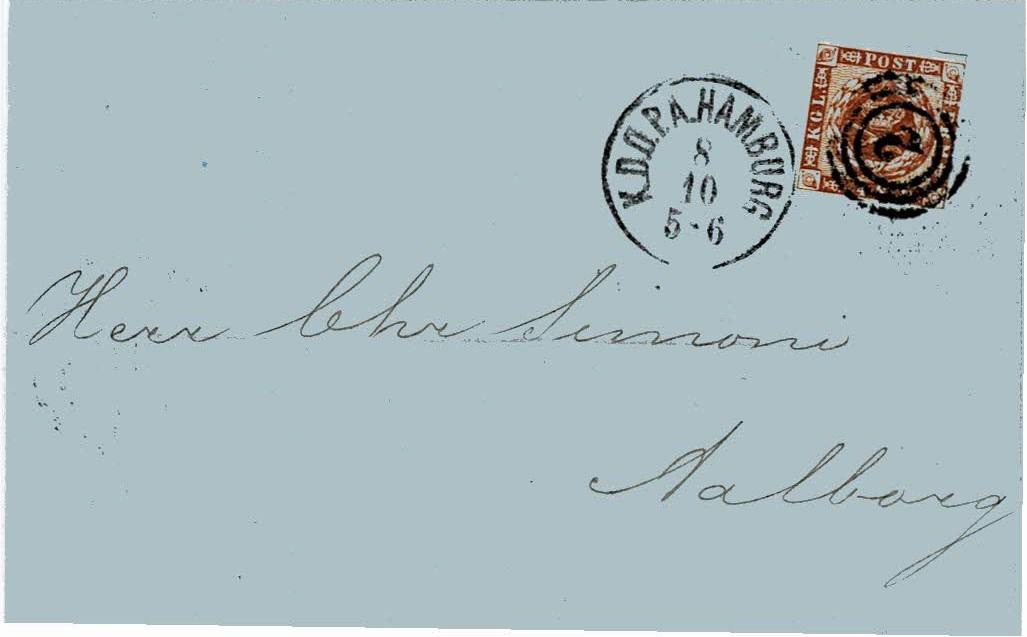 POST
KGL.
2
K.D.O.P.A.HAMBURG
8
10
5-6
Herr Chr Simoni
Aalborg